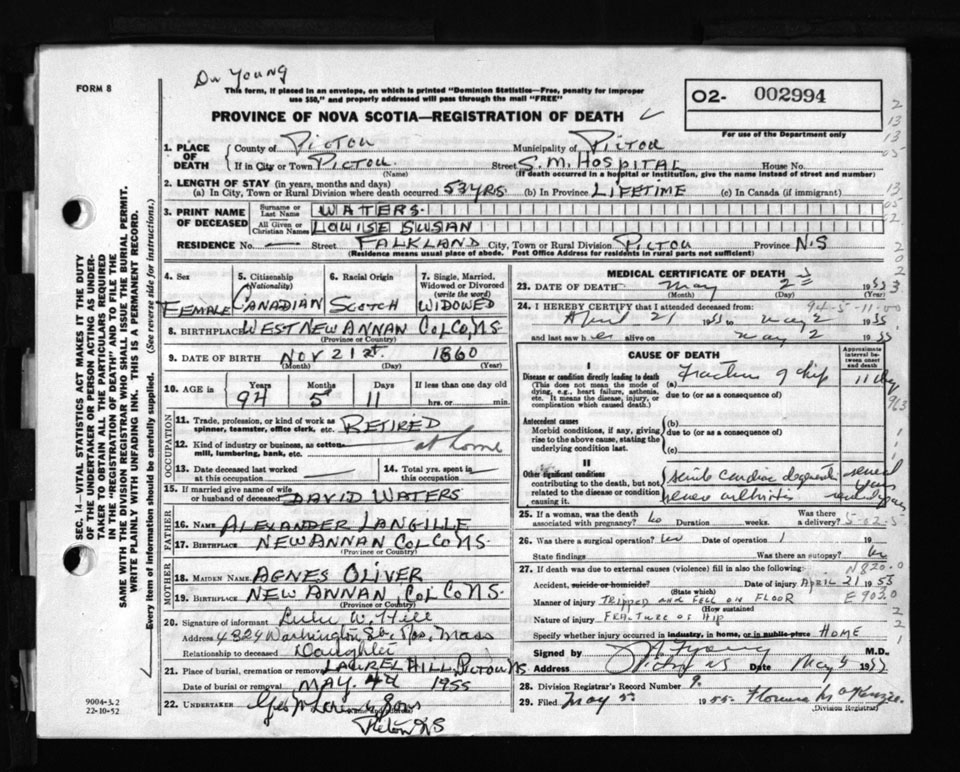 FORM 8
Dr Young
This form, if placed in an envelope, on which is printed "Dominion Statistics—Free, penalty for improper
use $50," and properly addressed will pass through the mail "FREE"
O2- 002994
For use of the Department only
PROVINCE OF NOVA SCOTIA—REGISTRATION OF DEATH
1. PLACE OF DEATH
County of Pictou Municipality of Pictou
If in City or Town Pictou Street S.M. Hospital House No.
(Name) (If death occurred in a hospital or institution, give the name instead of street and number)
2. LENGTH OF STAY (in years, months and days)
(a) In City, Town or Rural Division where death occurred 53 yrs (b) In Province LIFETIME (c) In Canada (if immigrant)
3. PRINT NAME OF DECEASED
Surname or Last Name WATERS
All Given or Christian Names LOUISE SUSAN
RESIDENCE No. — Street FALKLAND City, Town or Rural Division PICTOU Province N.S
(Residence means usual place of abode. Post Office Address for residents in rural parts not sufficient)
4. Sex
FEMALE
5. Citizenship
(Nationality)
CANADIAN
6. Racial Origin
SCOTCH
7. Single, Married,
Widowed or Divorced
(write the word)
WIDOWED
8. BIRTHPLACE WEST NEW ANNAN COL CO, NS
(Province or Country)
9. DATE OF BIRTH NOV 21st 1860
(Month) (Day) (Year)
10. AGE in
Years Months Days If less than one day old
94 5 11 hrs. or min.
OCCUPATION
11. Trade, profession, or kind of work as
spinner, teamster, office clerk, etc. RETIRED
12. Kind of industry or business, as cotton-
mill, lumbering, bank, etc. at home
13. Date deceased last worked
at this occupation
14. Total yrs. spent in
this occupation
15. If married give name of wife
or husband of deceased DAVID WATERS
FATHER
16. NAME ALEXANDER LANGILLE
17. BIRTHPLACE NEW ANNAN COL CO NS.
(Province or Country)
MOTHER
18. MAIDEN NAME AGNES OLIVER
19. BIRTHPLACE NEW ANNAN, COL CO NS.
(Province or Country)
20. Signature of informant Lulu W. Hill
Address 4324 Washington St. Ros, Mass
Relationship to deceased Daughter
21. Place of burial, cremation or removal LAUREL HILL, PICTOU NS.
Date of burial or removal MAY. 4th 1955
22. UNDERTAKER & Sons
Pictou NS
MEDICAL CERTIFICATE OF DEATH
23. DATE OF DEATH May 2nd 1955
(Month) (Day) (Year)
24. I HEREBY CERTIFY that I attended deceased from:
April 21 1955 to May 2 1955
and last saw her alive on May 2 1955
CAUSE OF DEATH
Approximate interval between onset and death
I
Disease or condition directly leading to death
(This does not mean the mode of dying, e.g., heart failure, asthenia, etc. It means the disease, injury, or complication which caused death.)
(a) Fracture of hip 11 days
due to (or as a consequence of)
Antecedent causes
Morbid conditions, if any, giving rise to the above cause, stating the underlying condition last.
(b)
due to (or as a consequence of)
(c)
II
Other significant conditions
contributing to the death, but not related to the disease or condition causing it.
senile cardiac several years
severe arthritis several years
25. If a woman, was the death
associated with pregnancy? no Duration weeks. Was there a delivery?
26. Was there a surgical operation? no Date of operation 19
State findings Was there an autopsy? no
27. If death was due to external causes (violence) fill in also the following: N820.0
Accident, suicide or homicide? Date of injury APRIL 21 1955
(State which) E903.0
Manner of injury TRIPPED AND FELL ON FLOOR
(How sustained)
Nature of injury FRACTURE OF HIP
Specify whether injury occurred in industry, in home, or in public place HOME
Signed by M.D.
Address Pictou NS Date May 5 1955
28. Division Registrar's Record Number 9.
29. Filed May 5 1955 Florence McKenzie
(Division Registrar)
SEC. 14—VITAL STATISTICS ACT MAKES IT THE DUTY
OF THE UNDERTAKER OR PERSON ACTING AS UNDER-
TAKER TO OBTAIN ALL THE PARTICULARS REQUIRED
IN THE "REGISTRATION OF DEATH" AND TO FILE THE
SAME WITH THE DIVISION REGISTRAR WHO SHALL ISSUE THE BURIAL PERMIT.
WRITE PLAINLY WITH UNFADING INK. THIS IS A PERMANENT RECORD.
Every item of information should be carefully supplied. (See reverse side for instructions.)
9004-3.2
22-10-52